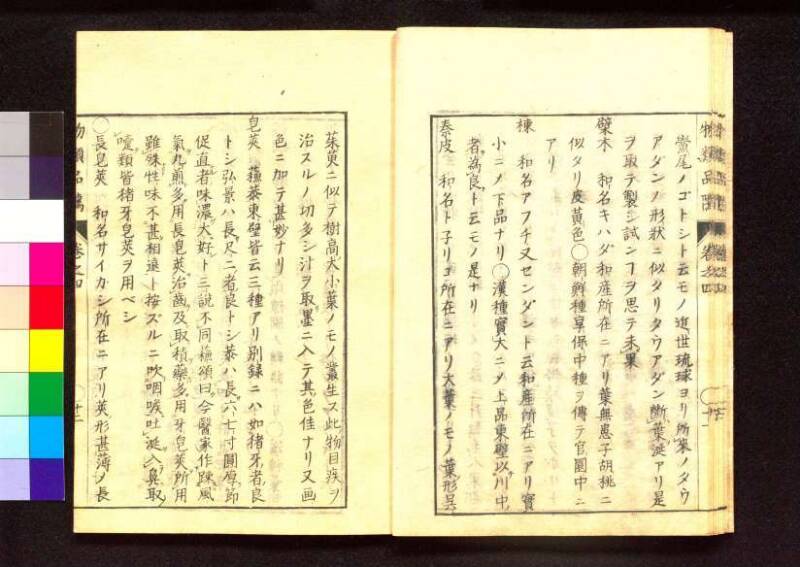 物類品隲 巻之四
鸞尾ノゴトシト云モノ近世琉球ヨリ所来ノタウ
アダンノ形状ニ似タリタウアダン断葉涎アリ是
ヲ取テ製シ試ンヿヲ思テ未果
檗木 和名キハダ和産所在ニアリ葉無患子胡桃ニ
似タリ皮黄色〇朝鮮種享保中種ヲ傳テ官園中ニ
アリ
楝 和名アフチ又センダント云和産所在ニアリ實
小ニメ下品ナリ〇漢種實大ニメ上品東壁以川中
者為良ト云モノ是ナリ
秦皮 和名トネリコ所在ニアリ大葉ノモノ葉形呉
茱萸ニ似テ樹高大小葉ノモノ叢生ス此物目疾ヲ
治スルノ切多シ汁ヲ取墨ニ入テ其色佳ナリ又画
色ニ加テ甚妙ナリ
皂莢 蘓恭東壁皆云三種アリ別録ニハ如猪牙者良
トシ弘景ハ長尺ニ者良トシ恭ハ長六七寸圓厚節
促直者味濃大好ト三説不同蘓頌曰今醫家作踈風
氣丸煎多用長皂莢治齒及取積藥多用牙皂莢所用
雖殊性味不甚相遠ト按ズルニ吹咽喉吐涎入鼻取
嚏類皆猪牙皂莢ヲ用ベシ
〇長皂莢 和名サイカシ所在ニアリ莢形甚薄ノ長
物類品隲 巻之四